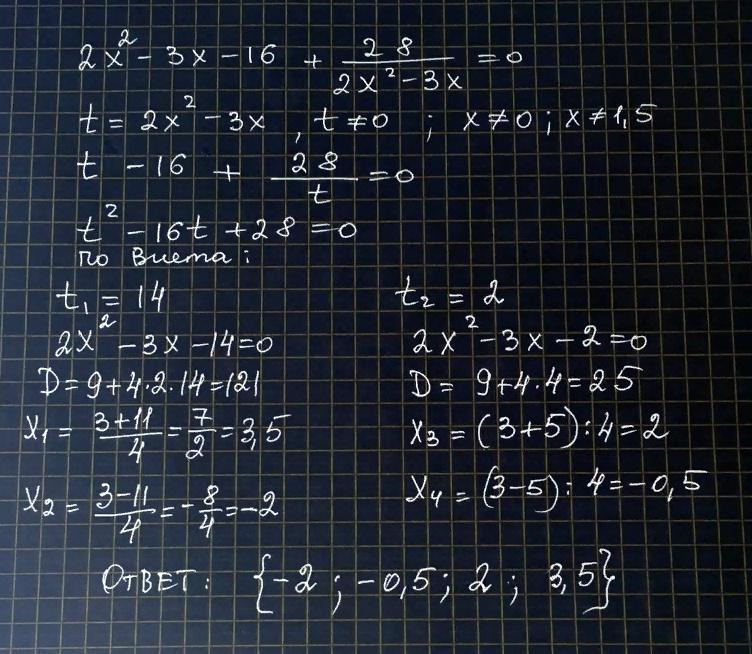 2x² - 3x - 16 + 28/(2x² - 3x) = 0
t = 2x² - 3x , t ≠ 0 ; x ≠ 0 ; x ≠ 1,5
t - 16 + 28/t = 0
t² - 16t + 28 = 0
по Виета :
t₁ = 14
2x² - 3x - 14 = 0
D = 9 + 4·2·14 = 121
x₁ = (3+11)/4 = 7/2 = 3,5
x₂ = (3-11)/4 = -8/4 = -2
t₂ = 2
2x² - 3x - 2 = 0
D = 9 + 4·4 = 25
x₃ = (3+5) : 4 = 2
x₄ = (3-5) : 4 = -0,5
ОТВЕТ : {-2 ; -0,5 ; 2 ; 3,5}